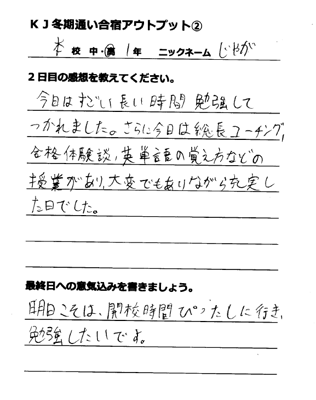 KJ冬期通い合宿アウトプット②
本 校 中・高 1年 ニックネーム じゃが
2日目の感想を教えてください。
今日はすごい長い時間勉強して
つかれました。さらに今日は総長コーチング,
合格体験談,英単語の覚え方などの
授業があり、大変でもありながら充実し
た日でした。
最終日への意気込みを書きましょう。
明日こそは、開校時間ぴったしに行き,
勉強したいです。